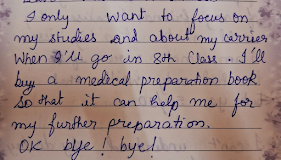 I only want to focus on
my studies and about my carrier
When I'll go in 8th Class. I'll
buy a medical preparation book
So that it can help me for
my further preparation.
OK bye! bye!